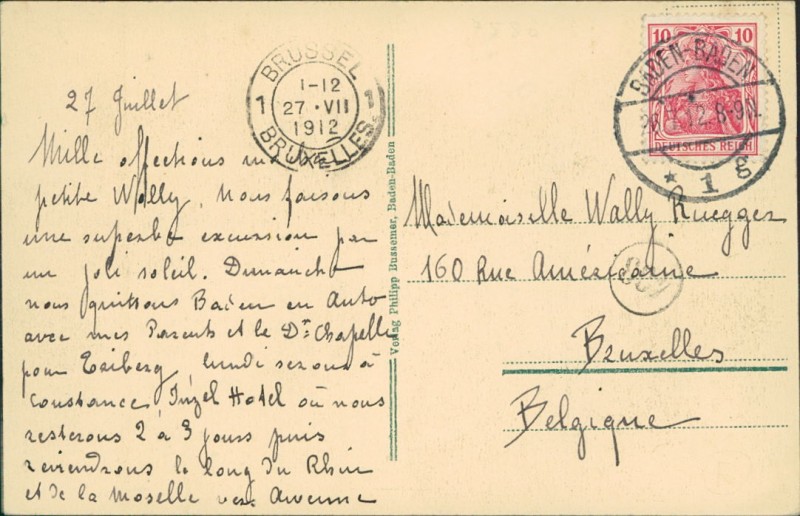 27 Juillet
Mille affections ma
petite Wally. Nous faisons
une superbe excursion par
un joli soleil. Dimanche
nous quittons Baden en Auto
avec mes Parents et le Dr. Chapelle
pour Triberg, lundi serons à
Constance Inzel Hotel où nous
resterons 2 à 3 jours puis
reviendrons le long du Rhin
et de la Moselle vers Avenne
BRUSSEL
1 1-12 1
27 · VII
1912
BRUXELLES
Verlag Philipp Bussemer, Baden-Baden
10 10
DEUTSCHES REICH
BADEN-BADEN
12.8-9N.
* 1 g
Mademoiselle Wally Ruegger
160 Rue Américaine
Bruxelles
Belgique